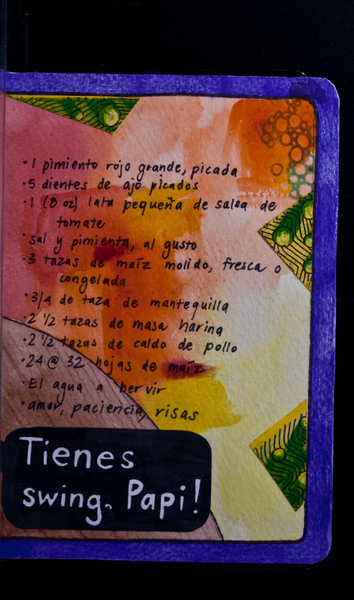 ·1 pimiento rojo grande, picada
·5 dientes de ajo picados
·1 (8 oz) lata pequeña de salsa de
tomate
·sal y pimienta, al gusto
·3 tazas de maíz molido, fresca o
congelada
·3/4 de taza de mantequilla
·2 1/2 tazas de masa harina
·2 1/2 tazas de caldo de pollo
·24 @ 32 hojas de maíz
·El agua a hervir
·amor, paciencia, risas
Tienes
swing, Papi!